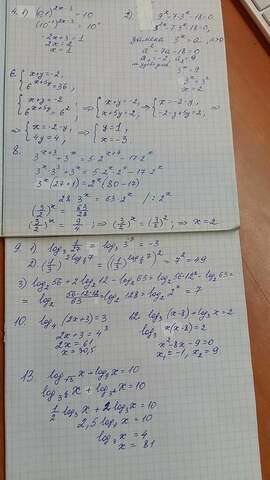 4. 1) (0,1)^{2x-3} = 10
(10^{-1})^{2x-3} = 10^1
-2x+3=1
2x=2
x=1
2) 3^{2x}-7·3^x-18=0
3^{2x}-7·3^x-18=0
замена 3^x=a, a>0
a^2-7a-18=0
a_1=-2, a_2=9
3^x=9
3^x=3^2
x=2
6. { x+y=-2,
6^{x+5y}=36;
{ x+y=-2,
6^{x+5y}=6^2; ⇒ { x+y=-2,
x+5y=2; ⇒ { x=-2-y,
-2-y+5y=2; ⇒
⇒ { x=-2-y,
4y=4; ⇒ { y=1,
x=-3
8.
3^{x+3}+3^x=5·2^{x+4}-17·2^x
3^x·3^3+3^x=5·2^x·2^4-17·2^x
3^x(27+1)=2^x(80-17)
28·3^x=63·2^x /:2^x
(3/2)^x=63/28
(3/2)^x=9/4; ⇒ (3/2)^x=(3/2)^2; ⇒ x=2
9. 1) log_3 1/27 = log_3 3^{-3} = -3
2) (1/7)^{-2log_7 7} = 7^2=49
3) log_2 56+2log_2 12-log_2 63=log_2 56·12^2-log_2 63=
=log_2 56·12·12/63=log_2 128=log_2 2^7=7
10. log_4 (2x+3)=3
2x+3=4^3
2x=61
x=30,5
12. log_3 (x-8)+log_3 x=2
log_3 x(x-8)=2
x^2-8x-9=0
x_1=-1, x_2=9
13. log_{√3} x+log_9 x=10
1/2 log_3 x+2log_3 x=10
2,5log_3 x=10
log_3 x=4
x=81